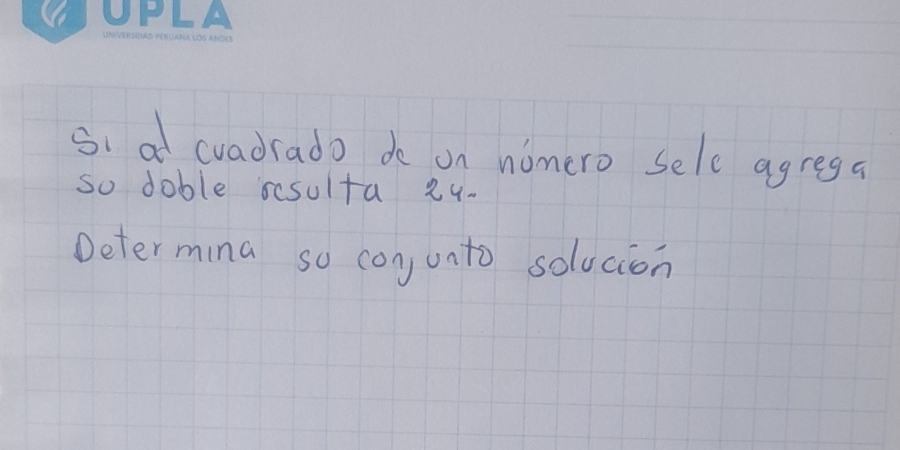 UPLA
UNIVERSIDAD PERUANA LOS ANDES
Si al cuadrado de un número sele agrega
su doble resulta 24.
Determina su conjunto solución